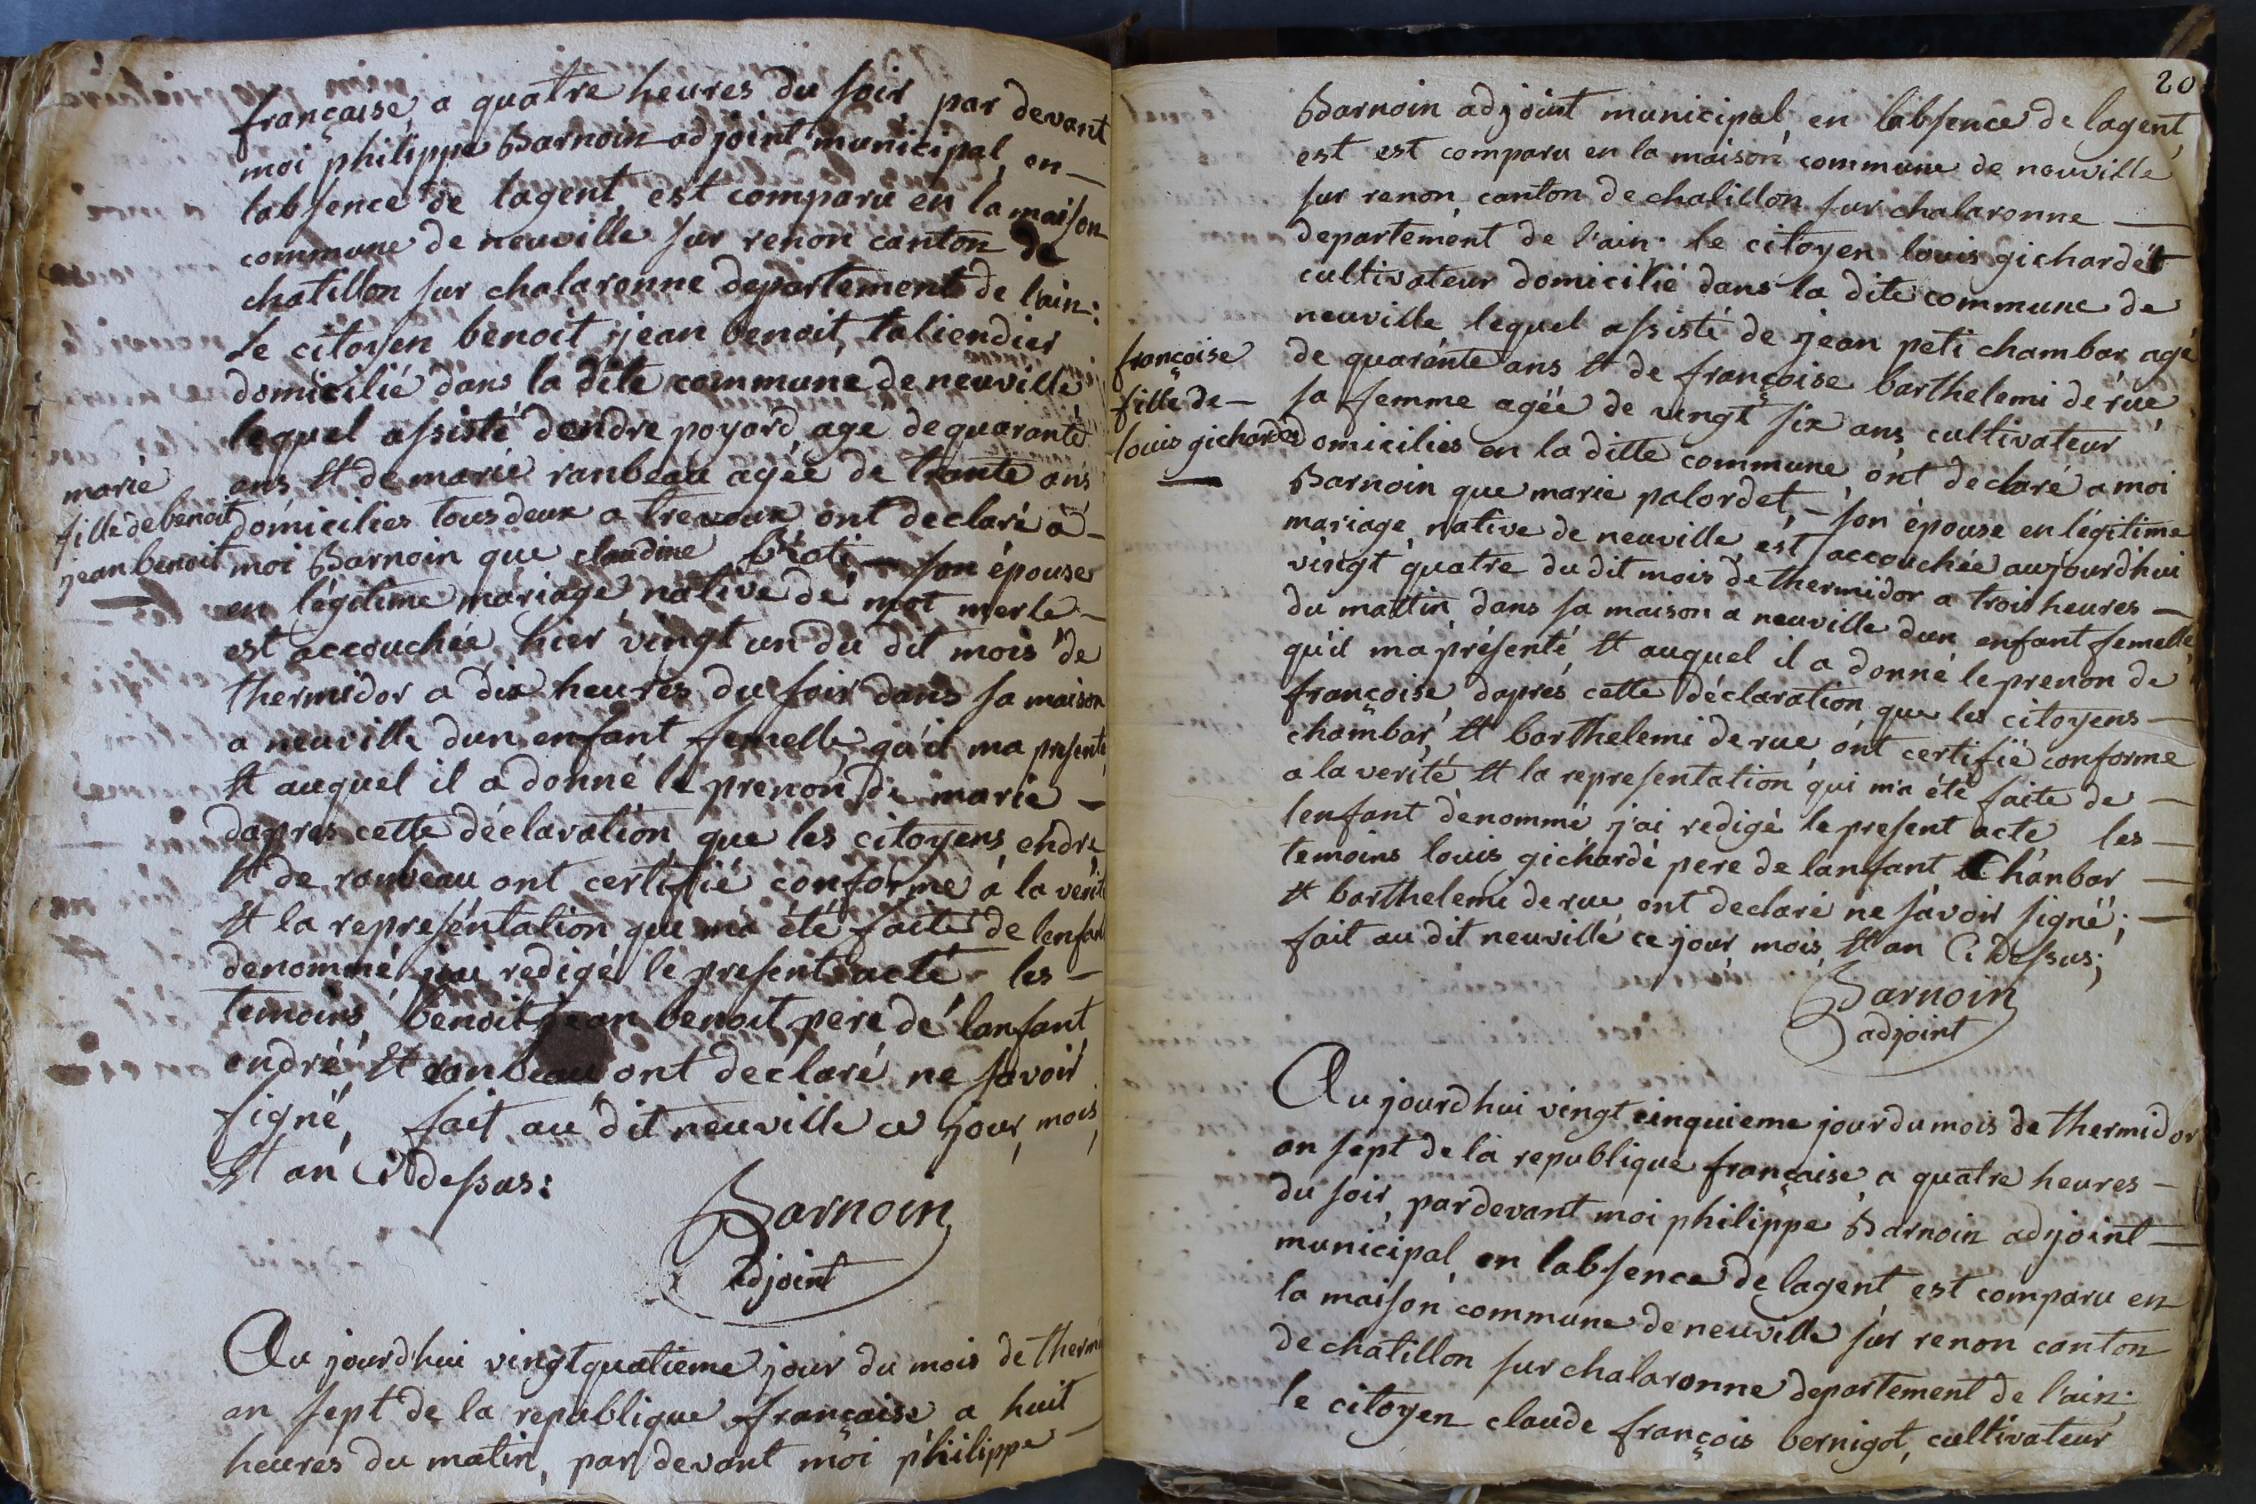 française, a quatre heures du soir, par devant
moi philippe Barnoin adjoint municipal, en
labsence de lagent, est comparu en la maison
commune de neuville sur renon canton de
chatillon sur chalaronne departement de l'ain:
le citoyen benoit jean benoit, taliendier
domicilié dans la dite commune de neuville
lequel assisté dendre poyard, age de quarante
ans et de marie ranbeau agée de trante ans
domicilies tous deux a trevoux ont declaré a
marie
fille de benoit
jean benoit
moi Barnoin que claudine son épouse
en légitime mariage, native de mot merle
est accouchée hier vingt un du dit mois de
thermidor a dix heures du soir dans sa maison
a neuville dun enfant femelle, qu'il ma presenté
et auquel il a donné le prenon de marie
dapres cette déclaration que les citoyens endre
et de ranbeau ont certifié conforme a la verité
et la representation que ma été faite de lenfant
denommé, jai redigé le present acte les
temoins, benoit jean benoit pere de lanfant
endré, et ranbeau ont declaré ne savoir
signé, fait au dit neuville ce jour, mois,
et an Ci dessus:
Barnoin
adjoint
Au jourdhui vingtquatieme jour du mois de therm
an sept de la republique française a huit
heures du matin, par devant moi philippe
20
Barnoin adjoint municipal, en labsence de lagent,
est est comparu en la maison commune de neuville
sur renon, canton de chalillon sur chalaronne
departement de l'ain. le citoyen louis gichardet
cultivateur domicilié dans la dite commune de
neuville lequel assisté de jean peti chambar, agé
de quarante ans et de françoise barthelemi de rue
sa femme agée de vingt six ans, cultivateur
domicilies en la ditte commune, ont declaré a moi
françoise
fille de
louis gichardé
Barnoin que marie palordet, son épouse en légitime
mariage, native de neuville, est accouchée aujourd'hui
vingt quatre du dit mois de thermidor a trois heures
du mattin, dans sa maison a neuville dun enfant femelle,
qu'il ma présenté, et auquel il a donné le prenon de
françoise, daprés cette déclaration que les citoyens
chambar, et barthelemi de rue ont certifié conforme
a la verité et la representation qui m'a été faite de
lenfant dénommé j'ai redigé le present acte, les
temoins louis gichardé pere de lanfant Chanbar
et barthelemi de rue ont declaré ne savoir signé;
fait au dit neuville ce jour, mois, et an Ci dessus;
Barnoin
adjoint
Au jourdhui vingt cinquieme jour du mois de thermidor
an sept de la republique française, a quatre heures
du soir, par devant moi philippe Barnoin adjoint
municipal, en labsence de lagent est comparu en
la maison commune de neuville sur renon canton
de chatillon sur chalaronne departement de l'ain.
le citoyen claude françois bernigot, cultivateur